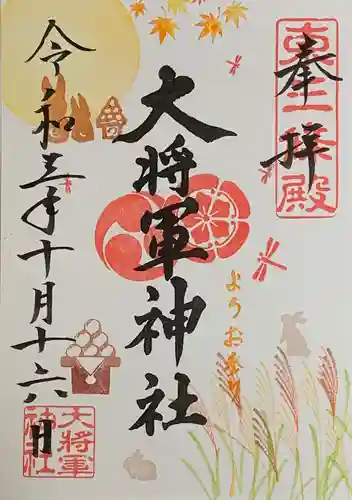 奉拝
東三条殿
大将軍神社
ようお参り
令和三年十月十六日
大将軍
神社